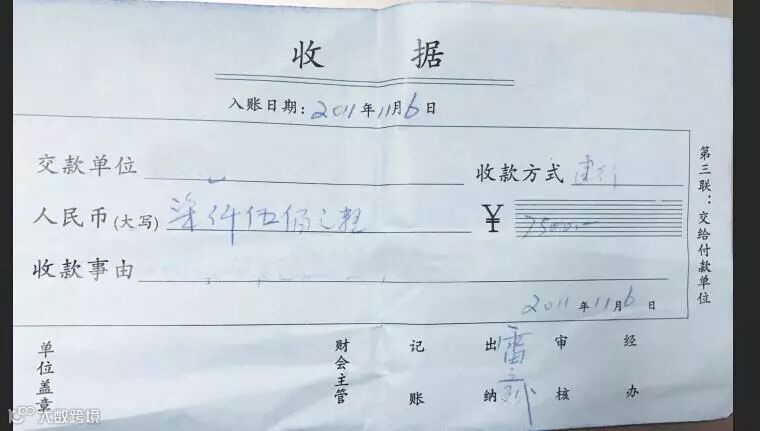 收 据
入账日期：2011年11月6日
交款单位 收款方式 建行
人民币(大写) 柒仟伍佰元整 ¥ 7500.-
收款事由
2011年11月6日
单位盖章 财会主管 记账 出纳 审核 经办
第三联：交给付款单位
大数跨境